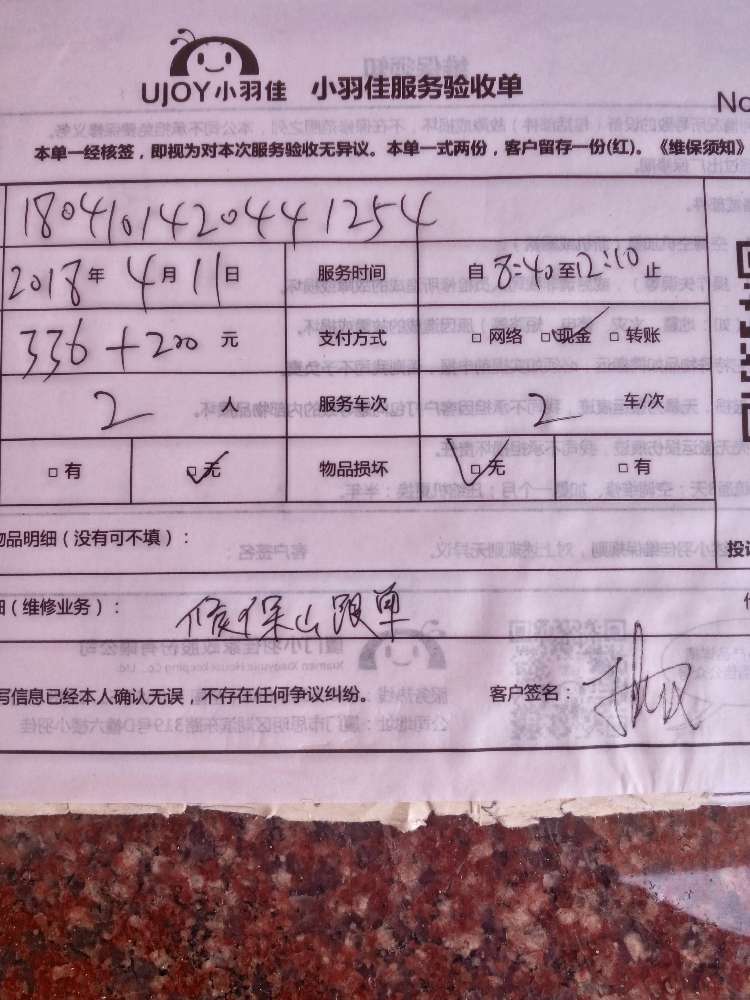 UJOY小羽佳 小羽佳服务验收单
No
本单一经核签，即视为对本次服务验收无异议。本单一式两份，客户留存一份(红)。《维保须知》
1804101420441254
2018年4月11日 服务时间 自8:40至12:10止
336+200元 支付方式 □网络 □现金 □转账
2人 服务车次 2车/次
□有 □无 物品损坏 □无 □有
物品明细（没有可不填）：
投诉
（维修业务）： 跟单
写信息已经本人确认无误，不存在任何争议纠纷。 客户签名：